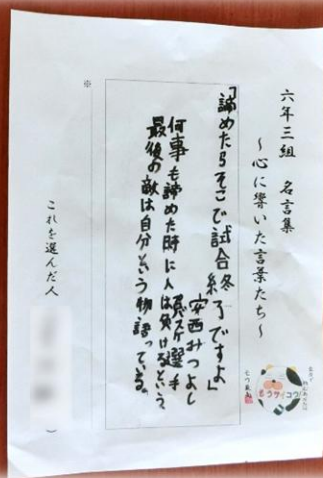 六年三組 名言集
～心に響いた言葉たち～
「諦めたらそこで試合終了ですよ」
安西みつよし
バスケ選手
何事も諦めた時に人は負けるという、
最後の敵は自分という物語っている。
※
これを選んだ人
（ ）